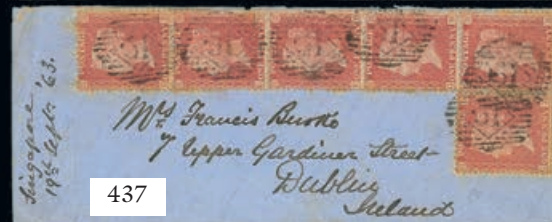 Singapore
19th Septr. '63.
Mrs Francis Burke
7 Upper Gardiner Street
Dublin
Ireland
437